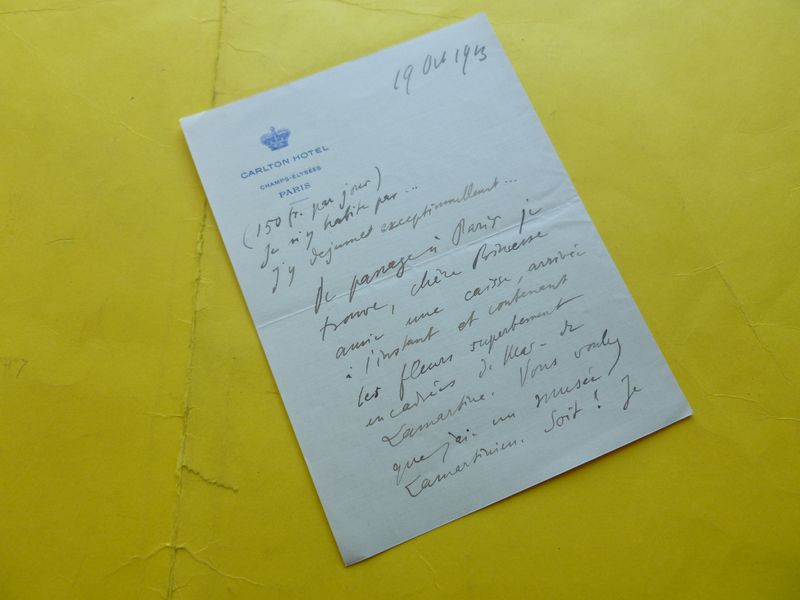 19 Oct 1913
CARLTON HOTEL
CHAMPS-ÉLYSÉES
PARIS
(150 fr. par jour)
Je n'y habite pas...
J'y dejeunet exceptionnellement...
De passage à Paris je
trouve, chère Princesse
amie une caisse arrivée
à l'instant et contenant
les fleurs superbement
encadrées de Mme de
Lamartine. Vous voulez
que j'aie un musée
Lamartinien. Soit! Je